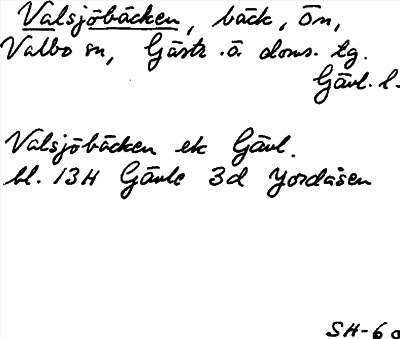 Valsjöbäcken, bäck, Ön,
Valbo sn, Gästr. ö. doms. tg.
Gävl. l.
Valsjöbäcken ek Gävl.
bl. 13H Gävle 3d Jordåsen
SH-60